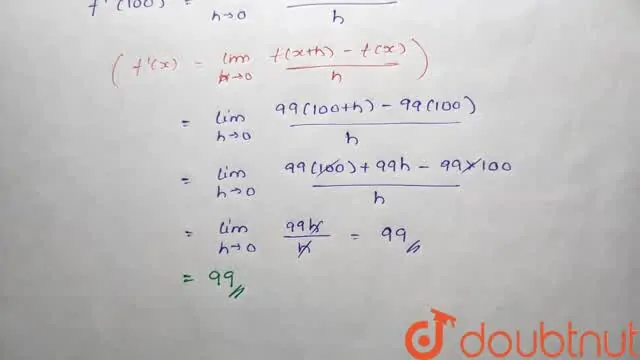 f'(100) = lim h→0 h
( f'(x) = lim h→0 f(x+h) - f(x) / h )
= lim h→0 99(100+h) - 99(100) / h
= lim h→0 99(100) + 99h - 99×100 / h
= lim h→0 99h / h = 99
= 99
doubtnut